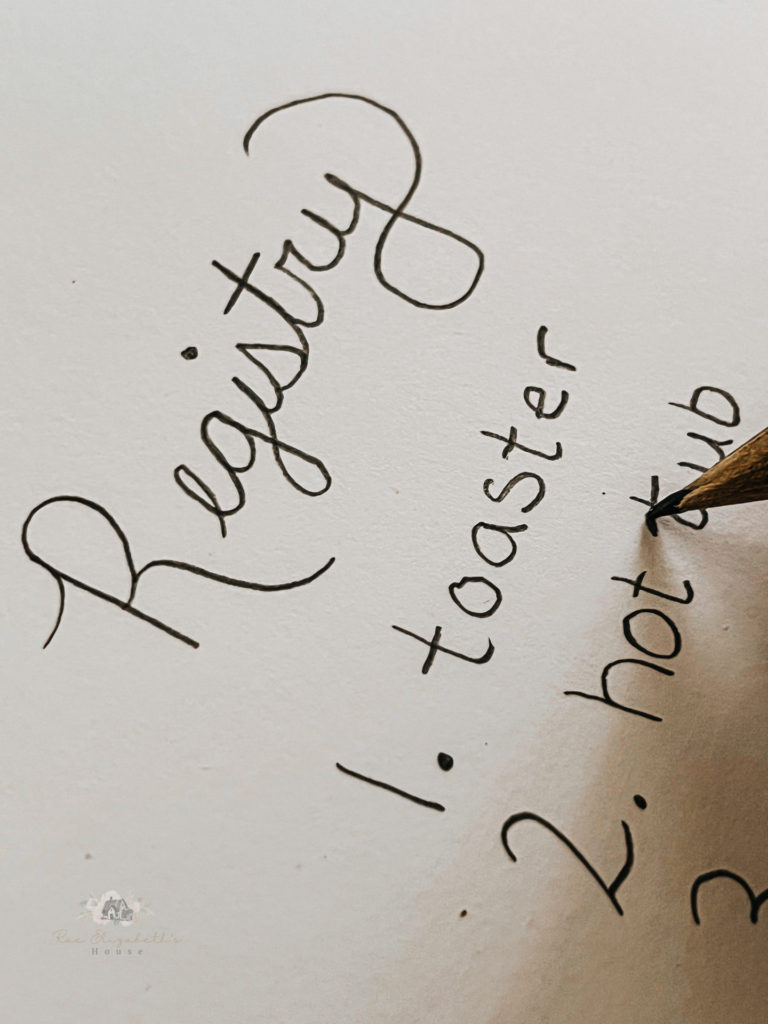 Registry
1. toaster
2. hot tub
3
Rae Elizabeth's
House